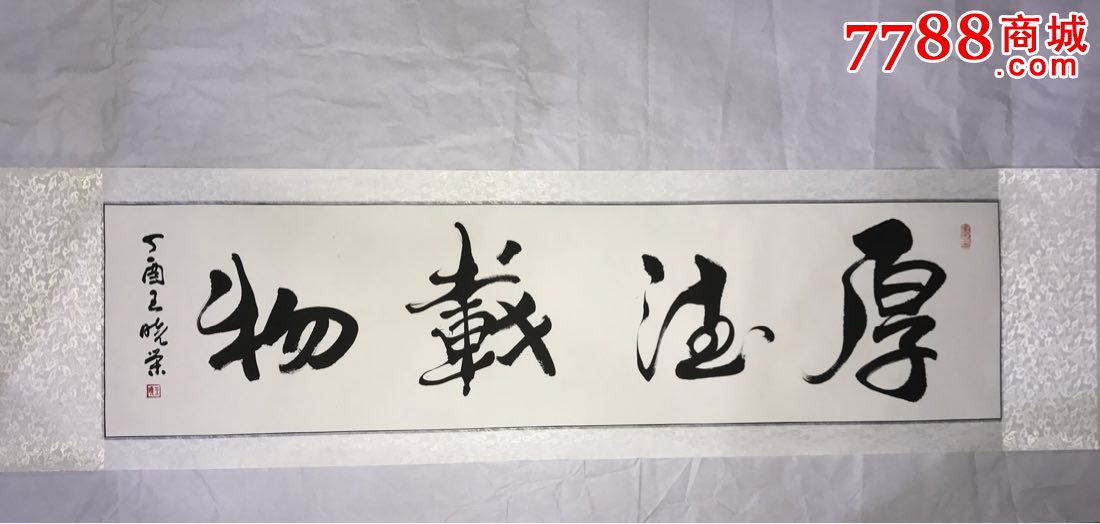 7788商城
.com
厚德載物
丁酉王晓荣